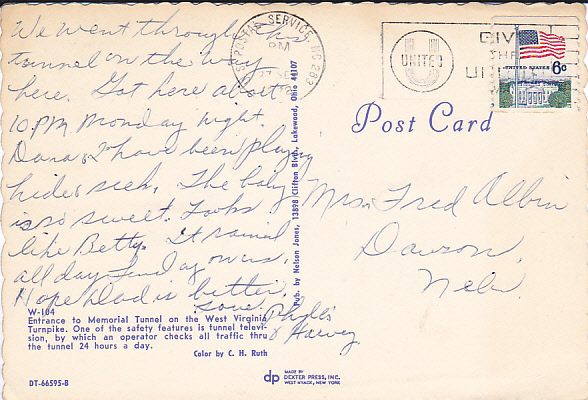 We went through this
tunnel on the way
here. Got here about
10 PM Monday night.
Dana & I have been playing
hide & seek. The baby
is so sweet. Looks
like Betty. It rained
all day on us.
Hope Dad is better.
Love. Phyllis
& Harvey
W-104
Entrance to Memorial Tunnel on the West Virginia
Turnpike. One of the safety features is tunnel televi-
sion, by which an operator checks all traffic thru
the tunnel 24 hours a day.
Color by C. H. Ruth
DT-66595-B
Pub. by Nelson Jones, 13898 Clifton Blvd., Lakewood, Ohio 44107
dp
MADE BY
DEXTER PRESS, INC.
WEST NYACK, NEW YORK
POSTAL SERVICE NC 283
PM
U
UNITED
GIVE
THE
UNITED
UNITED STATES 6c
Post Card
Mrs. Fred Albin
Dawson,
Nebr.